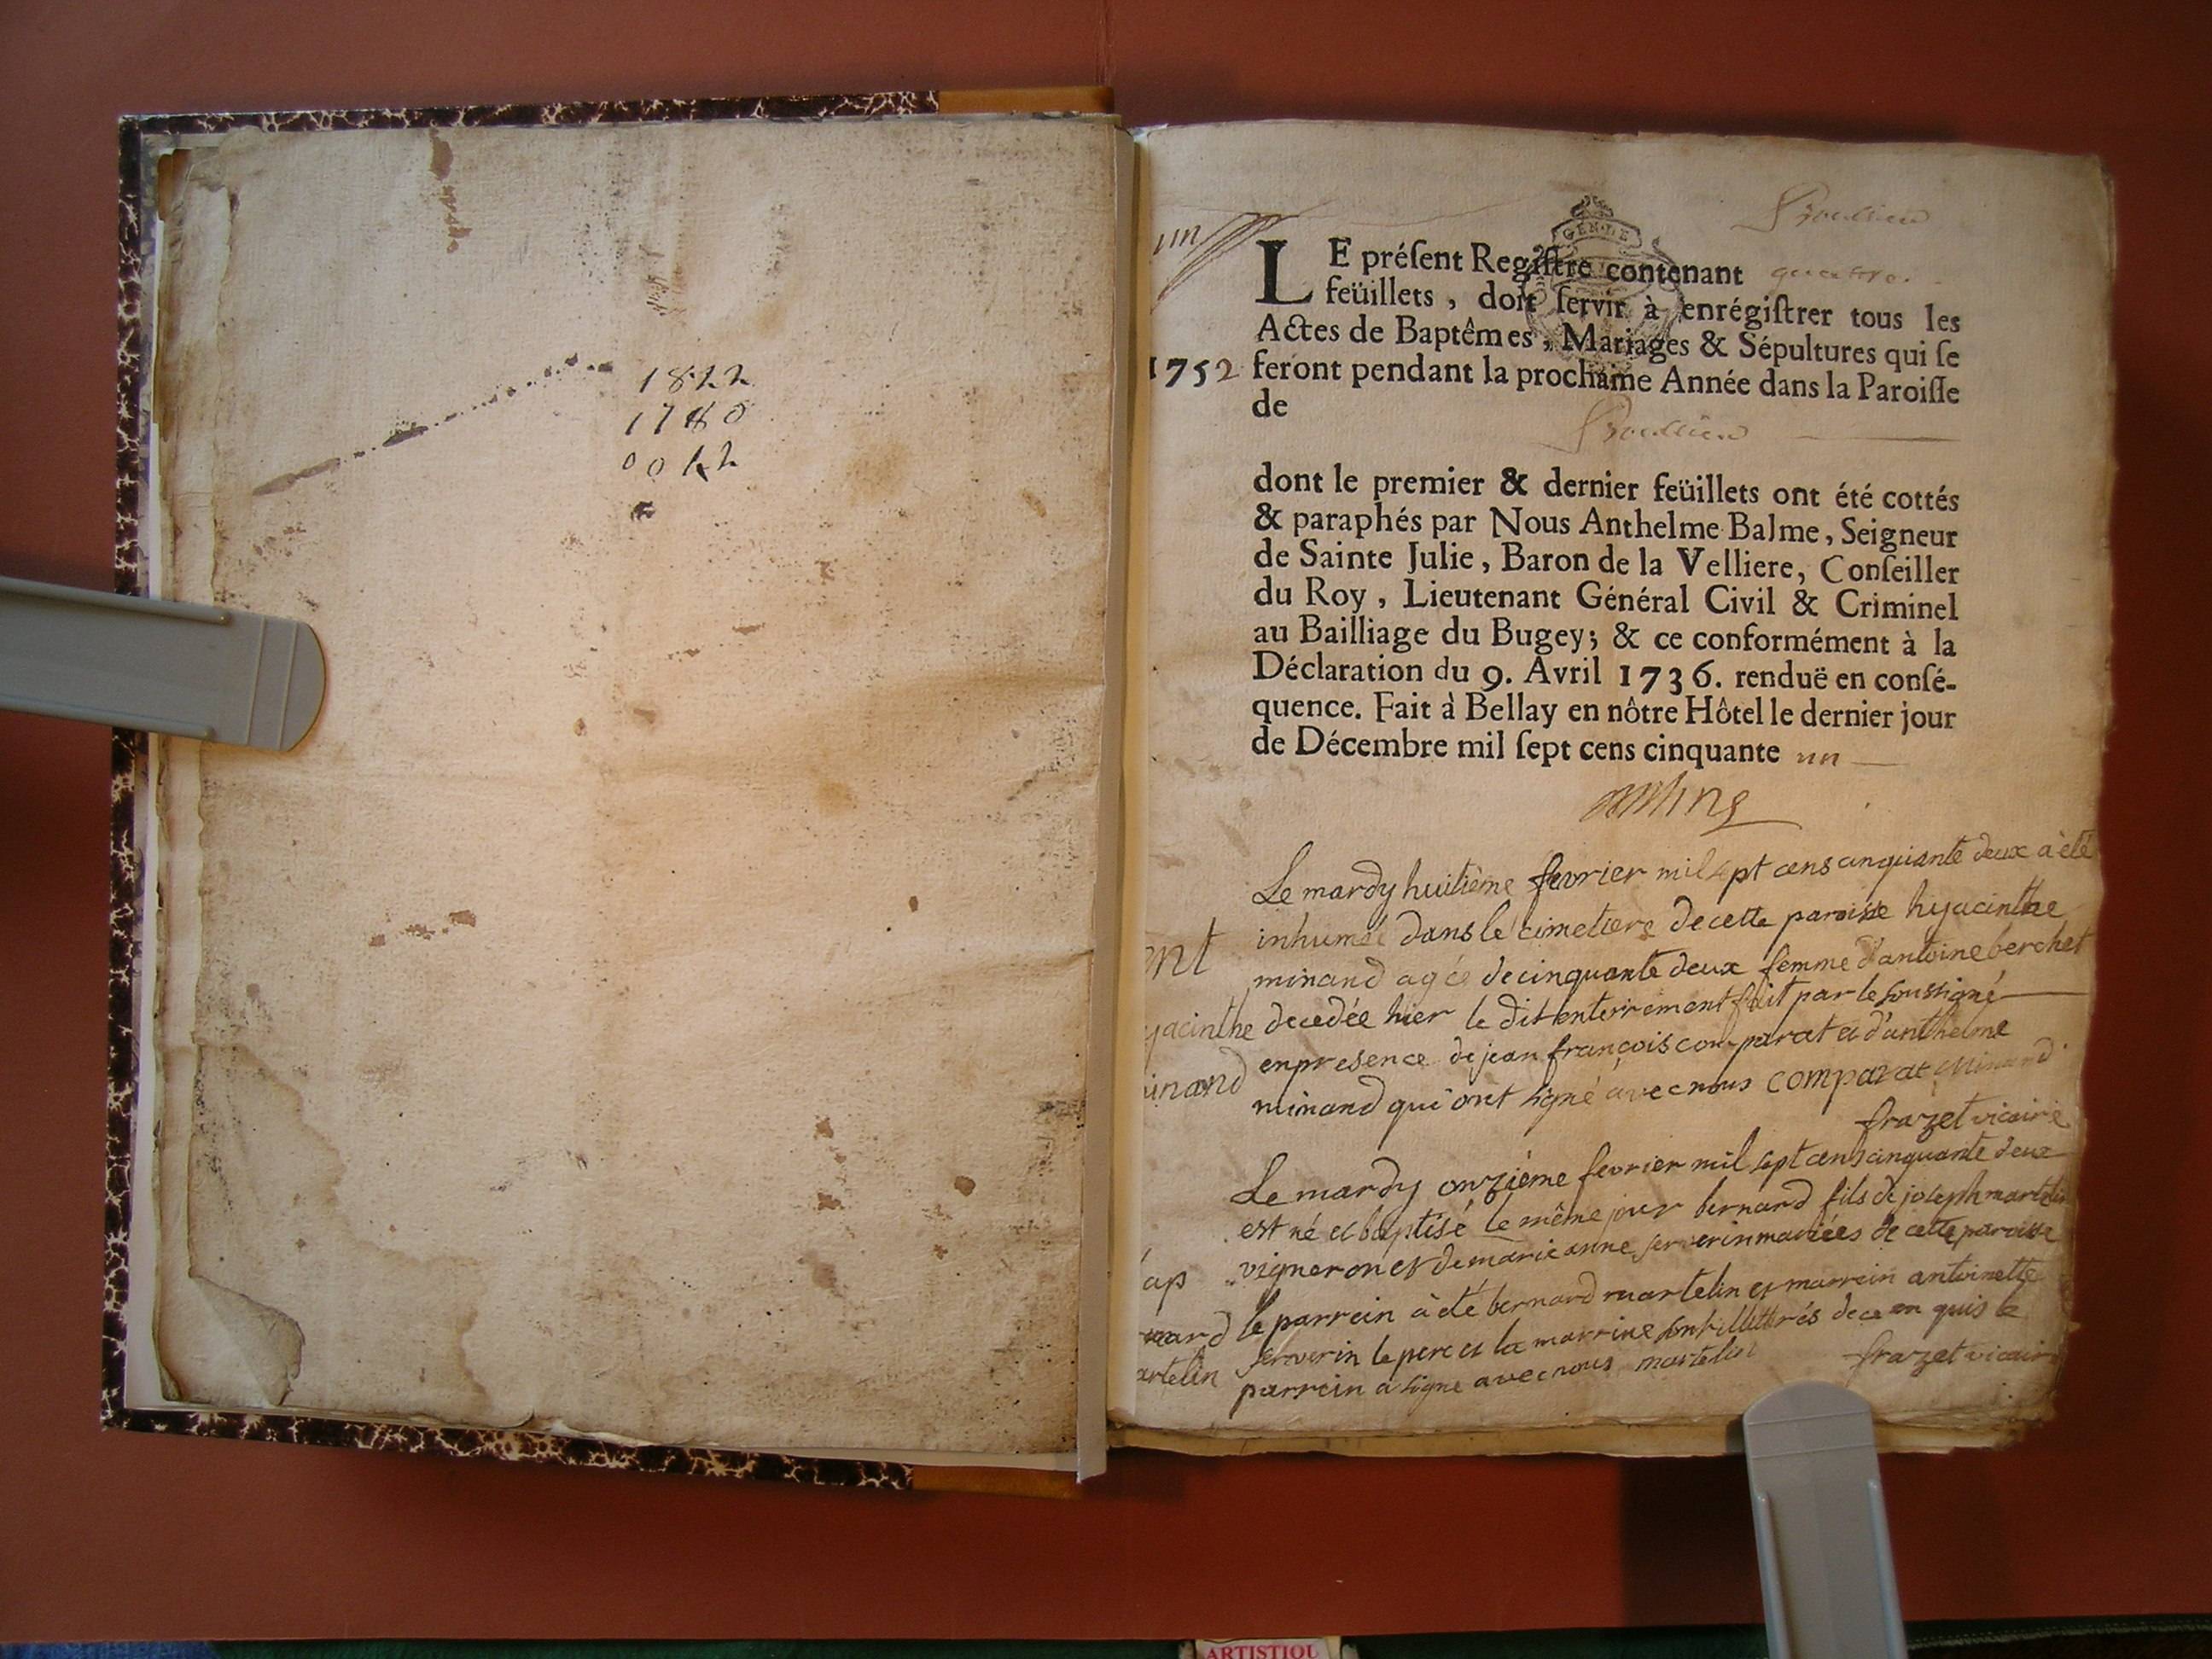 1822
1780
0042
un
GEN·DE
LE préſent Regiſtre contenant quatre
feüillets, doit ſervir à enrégiſtrer tous les
Actes de Baptêmes, Mariages & Sépultures qui ſe
1752 feront pendant la prochaine Année dans la Paroiſſe
de
dont le premier & dernier feüillets ont été cottés
& paraphés par Nous Anthelme Balme, Seigneur
de Sainte Julie, Baron de la Velliere, Conſeiller
du Roy, Lieutenant Général Civil & Criminel
au Bailliage du Bugey; & ce conformément à la
Déclaration du 9. Avril 1736. renduë en conſé-
quence. Fait à Bellay en nôtre Hôtel le dernier jour
de Décembre mil ſept cens cinquante un
Le mardy huitième fevrier mil sept cens cinquante deux à été
inhumée dans le cimetiere de cette paroisse hyacinthe
ent
minand agée de cinquante deux femme d'antoine berchet
yacinthe
decedée hier le dit enterrement fait par le soussigné
inand
en presence de jean françois comparat et d'anthelme
minand qui ont signé avec nous comparat Minand
frazet vicaire
Le mardy onzième fevrier mil sept cens cinquante deux
est né et baptisé le même jour bernard fils de joseph martelin
ap
vigneron et de marie anne serverin mariées de cette paroisse
nard
le parrein à été bernard martelin et marrein antoinette
artelin
serverin le pere et la marrine sont illittérés de ce enquis le
parrein a signe avec nous martelin frazet vicaire
ARTISTIQU